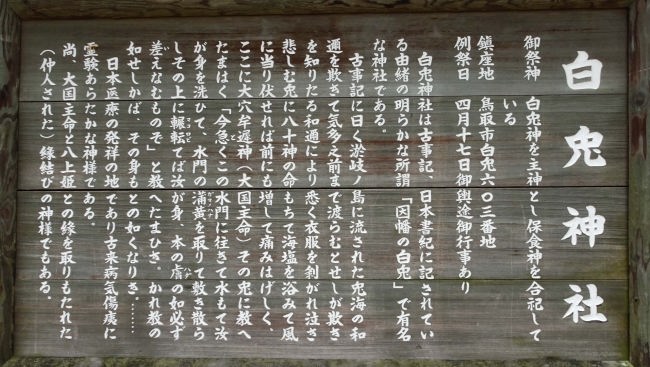 白兎神社
御祭神　白兎神を主神とし保食神を合祀して
いる
鎮座地　鳥取市白兎六〇三番地
例祭日　四月十七日御輿途御行事あり
白兎神社は古事記、日本書紀に記されてい
る由緒の明らかな所謂「因幡の白兎」で有名
な神社である。
古事記に曰く淤岐ノ島に流された兎海の和
通を欺きて気多之前まで渡らむとせしが欺き
を知りたる和通により悉く衣服を剥がれ泣き
悲しむ兎に八十神の命もちて海塩を浴みて風
に当り伏せれば前にも増して痛みはげしく、
ここに大穴牟遅神（大国主命）その兎に教へ
たまはく「今急くこの水門に往きて水もて汝
が身を洗ひて、水門の蒲黄を取りて敷き散ら
しその上に輾転てば汝が身、本の膚の如必ず
差えなむものぞ」と教へたまひき。かれ教の
如せしかば、その身もとの如くなりき。……
日本医療の発祥の地であり古来病気傷痍に
霊験あらたかな神様である。
尚、大国主命と八上姫との縁を取りもたれた
（仲人された）縁結びの神様でもある。